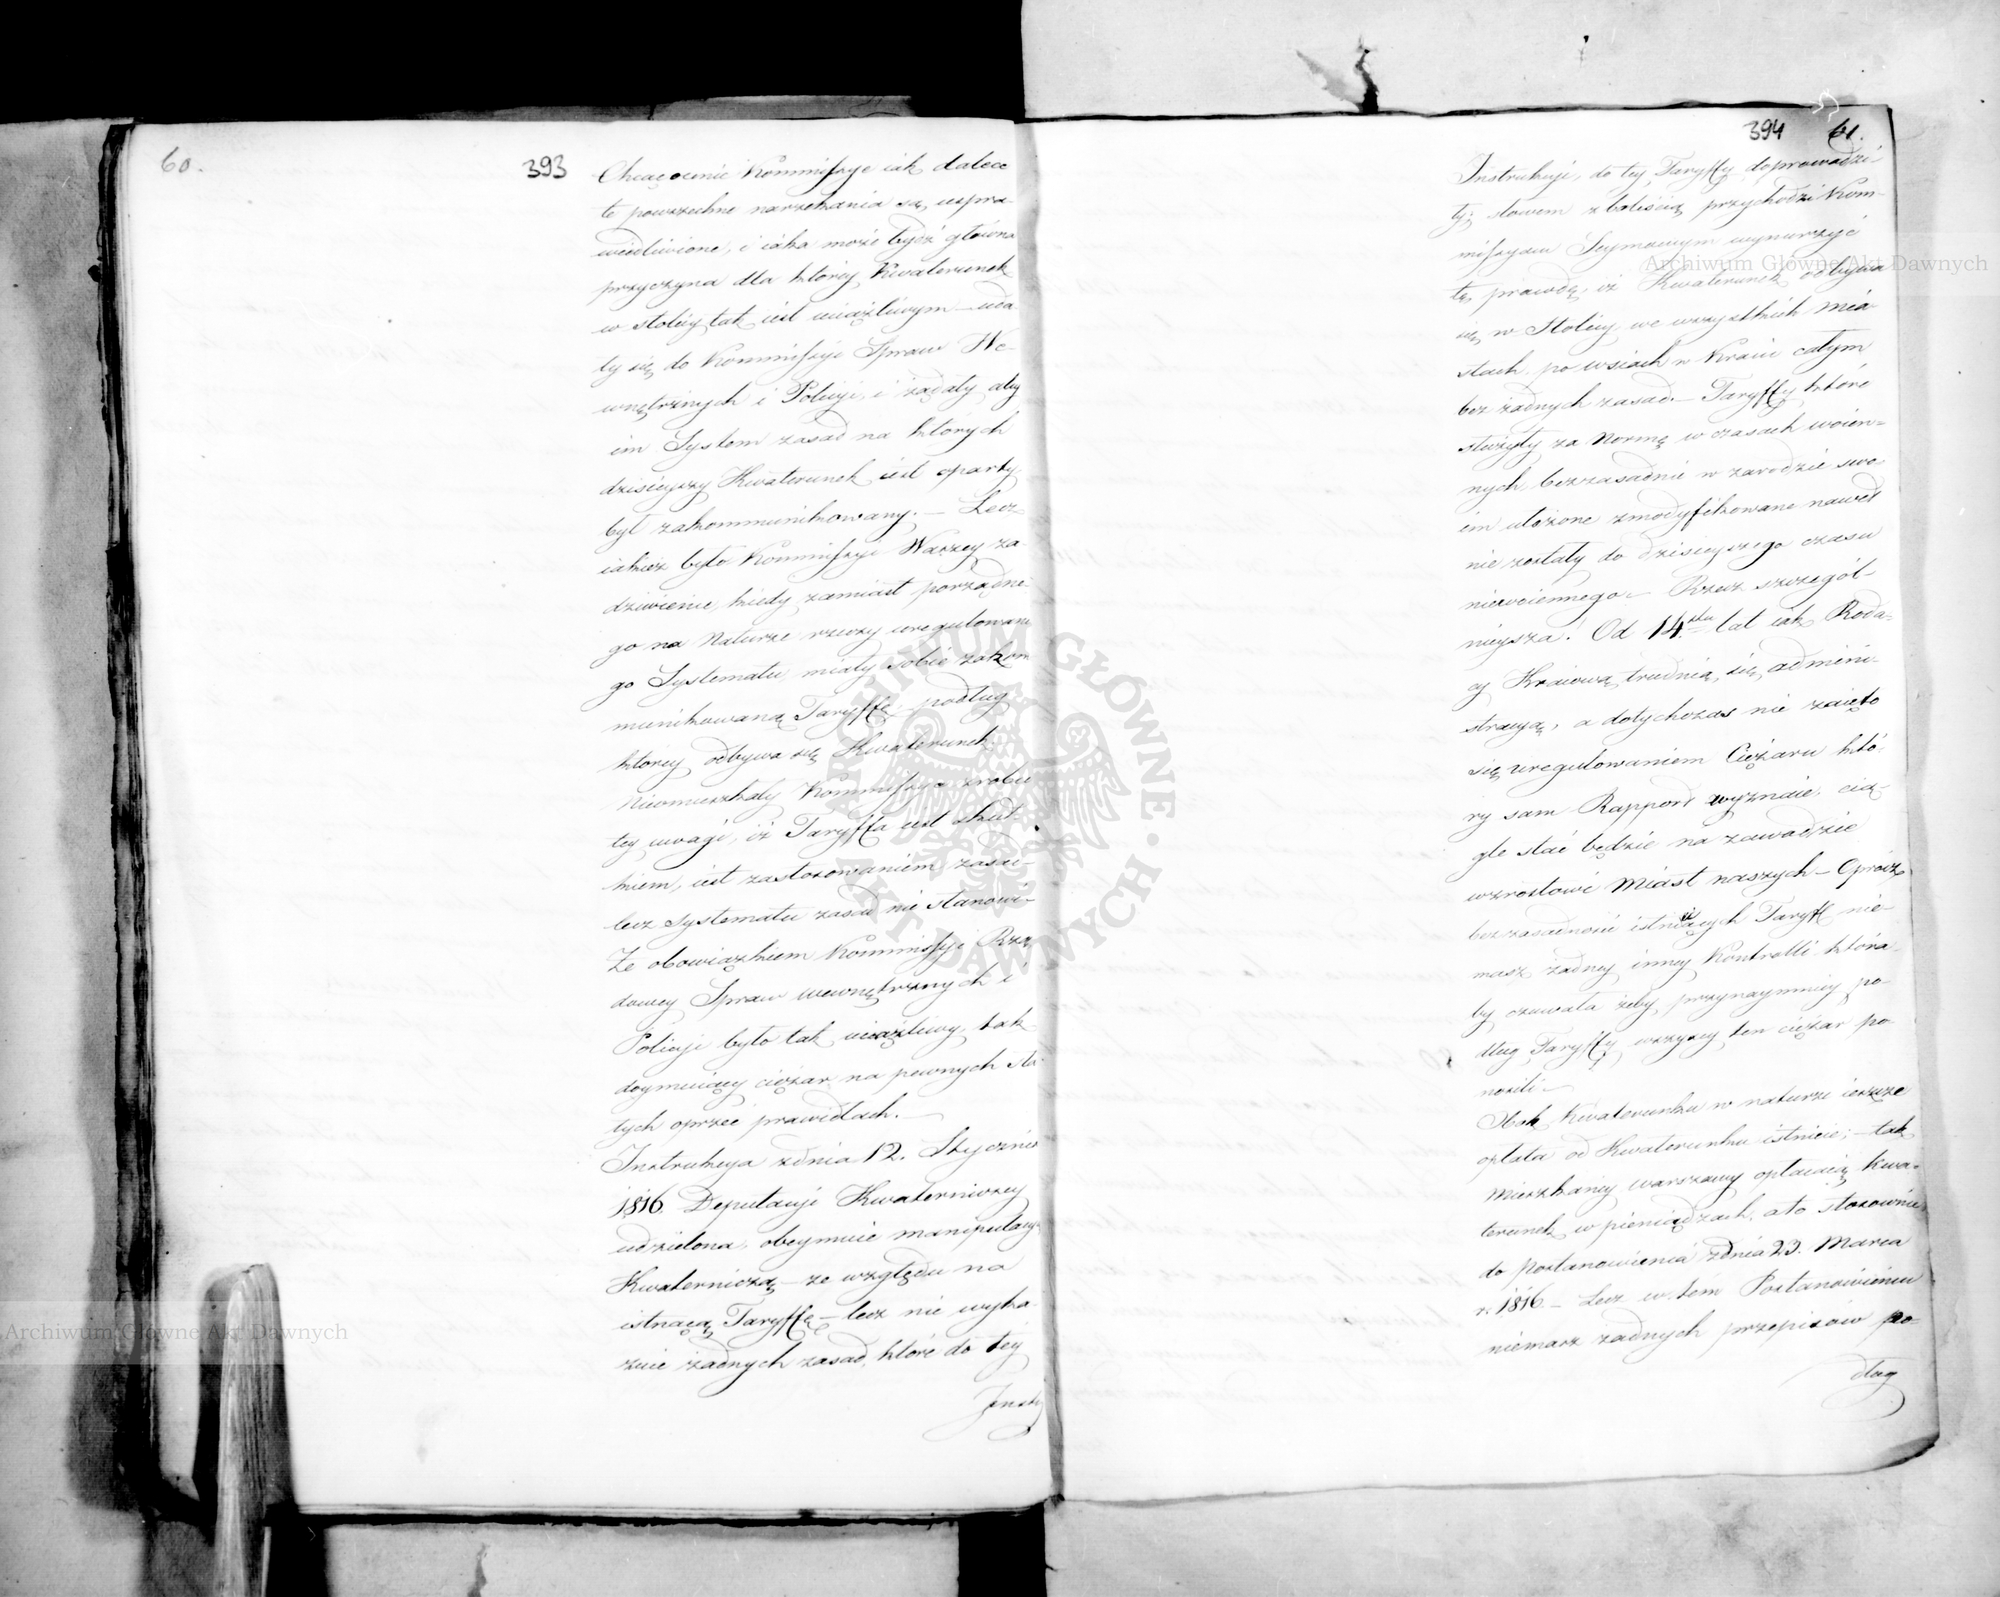 60.
393
Chcąc ocenić Kommissye iak dalece
te powszechne narzekania są uspra-
wiedliwione, i iaka może bydź główna
przyczyna dla któréy Kwaterunek
w stolicy tak iest uciążliwym — uda
ły się do Kommissyi Spraw We-
wnętrznych i Policyi, i żądały aby
im System zasad na których
dzisieyszy Kwaterunek iest oparty,
był zakommunikowany. — Lecz
iakież było Kommissyi Naszey za-
dziwienie, kiedy zamiast porządne-
go na Naturze rzeczy uregulowane
go Systematu miały sobie zakom
munikowaną Taryffę, podług
którey odbywa się Kwaterunek.
Nieomieszkały Kommissye zrobić
tey uwagi, iż Taryffa iest skut-
kiem, iest zastosowaniem zasad
lecz systematu zasad nie stanowi-
Że obowiązkiem Kommissyi Rzą
dowey Spraw wewnętrznych i
Policyi było tak uciążliwy, tak
doymuiący ciężar na pewnych sta
łych oprzeć prawidłach. —
Instrukcya z dnia 12. Stycznia
1816 Deputacyi Kwaterniczey
udzielona, obeymuie manipulacyą
Kwaterniczą — ze względu na
istnącą Taryffę — lecz nie wyka-
zuie żadnych zasad, które do téy
Instr
394 61.
Instrukcyi, do tey Taryffy doprowadzi-
ły; słowem z boleścią przychodzi Kom-
missyom Seymowym wynurzyć
tę prawdę, iż Kwaterunek odbywa
się w Stolicy, we wszystkich mia
stach, po wsiach w Kraiu całym
bez żadnych zasad. — Taryffy które
służyły za Normę w czasach woien=
nych, bezzasadnie w zarodzie swo-
im ułożone zmodyfikowane nawet
nie zostały do dzisieyszego czasu
niewoiennego. — Rzecz szczegól-
nieysza! Od 14stu lat iak Roda-
cy Kraiową trudnią się admini-
stracyą, a dotychczas nie zaięto
się uregulowaniem Ciężaru któ-
ry sam Rapport wyznaie, cią-
gle stać będzie na zawadzie
wzrostowi Miast naszych — Oprócz
bezzasadności istniących Taryff nie-
masz żadney inney Kontrolli która-
by czuwała żeby przynaymniey po-
dług Taryffy wszyscy ten ciężar po-
nosili —
Obok Kwaterunku w naturze ieszcze
opłata od Kwaterunku istnieie; — tak
Mieszkańcy Warszawy opłacaią Kwa-
terunek w pieniądzach, a to stosownie
do postanowienia z dnia 23. Marca
r. 1816 — Lecz w tém Postanowieniu
niemasz żadnych przepisów po-
dług
Archiwum Główne Akt Dawnych
Archiwum Główne Akt Dawnych
ARCHIWUM GŁÓWNE AKT DAWNYCH